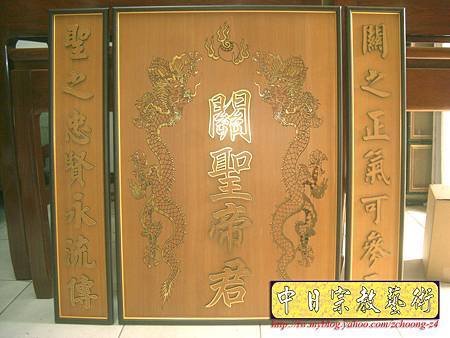 關聖帝君
關之正氣可參
聖之忠賢永流傳
中日宗教藝術
http://tw.myblog.yahoo.com/zchoong-z4